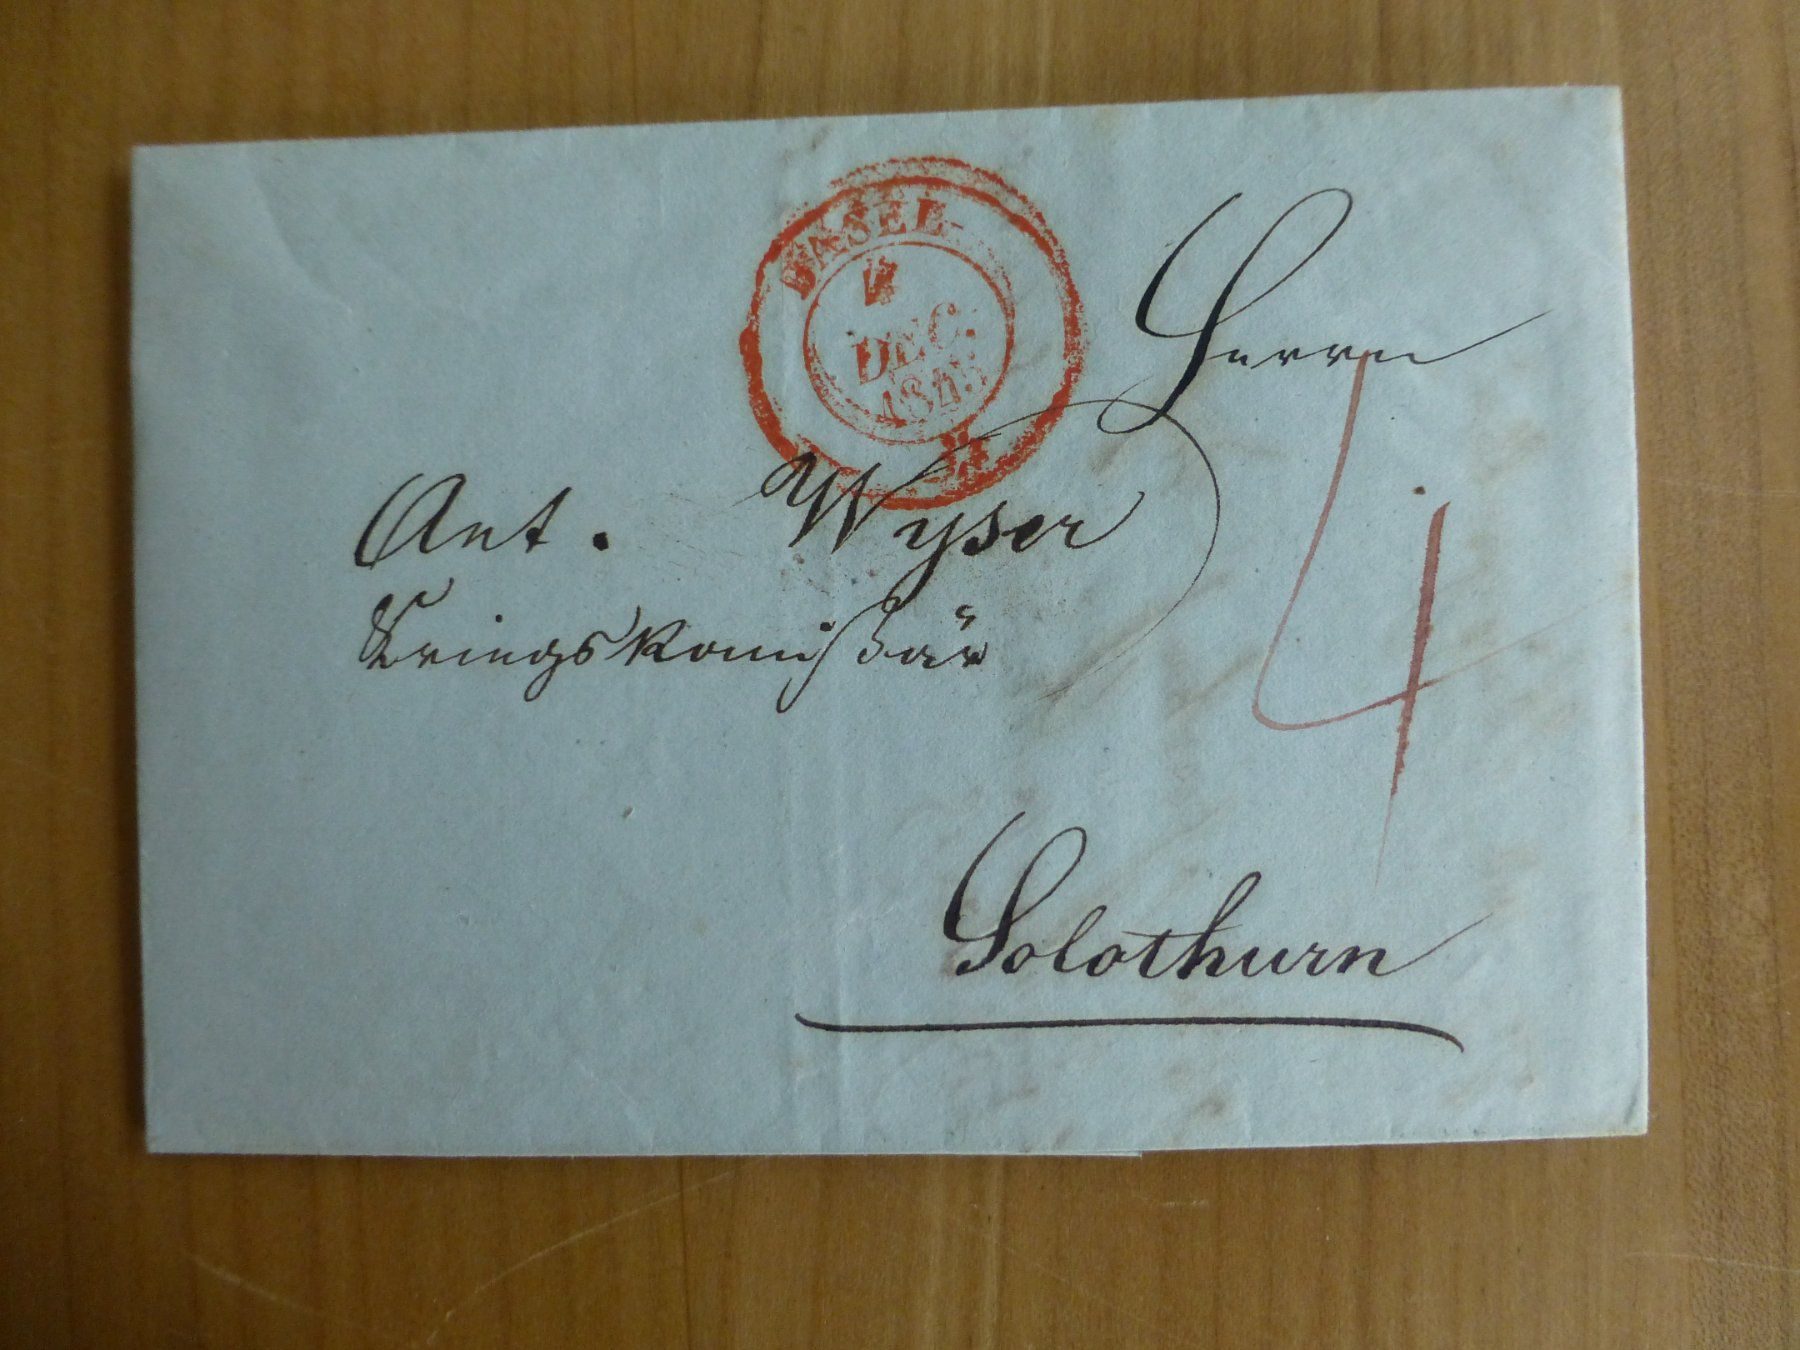 BASEL
4
DEC.
184
Herrn
Ant. Wyser
Kriegskomissär
4
Solothurn